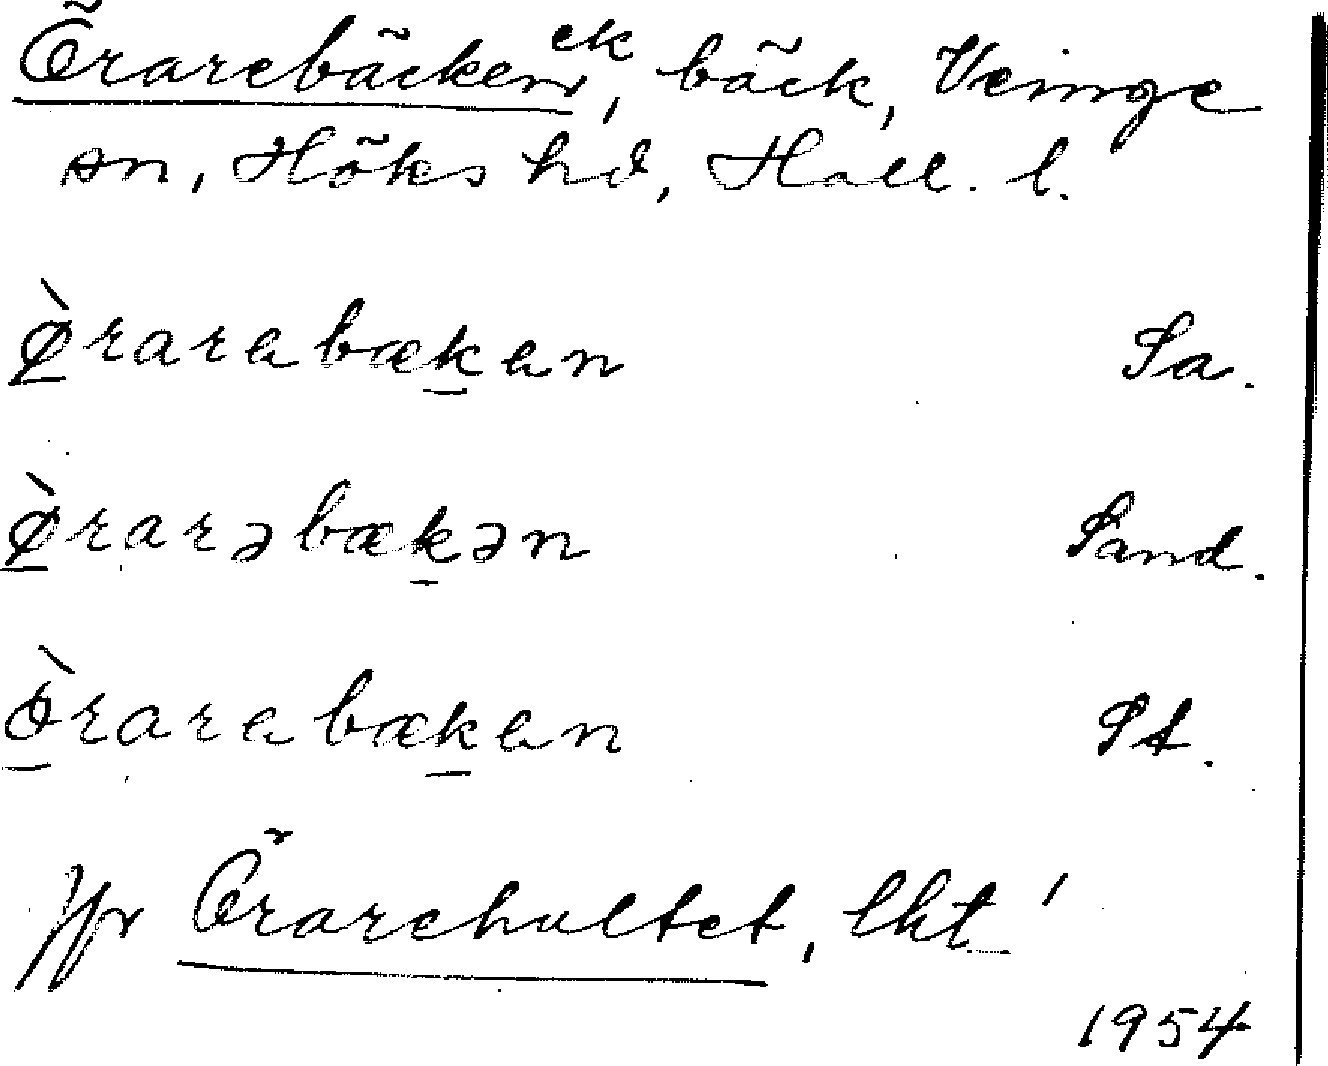 Örarebäcken, ek bäck, Veinge
sn, Höks hd, Hall. l.
Ø̀rarebæken Sa.
Ø̀rarəbækən Sand.
Òrarebæken St.
Jfr Örarehultet, lkt!
1954